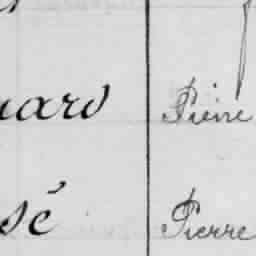 uard Pierre
sé Pierre